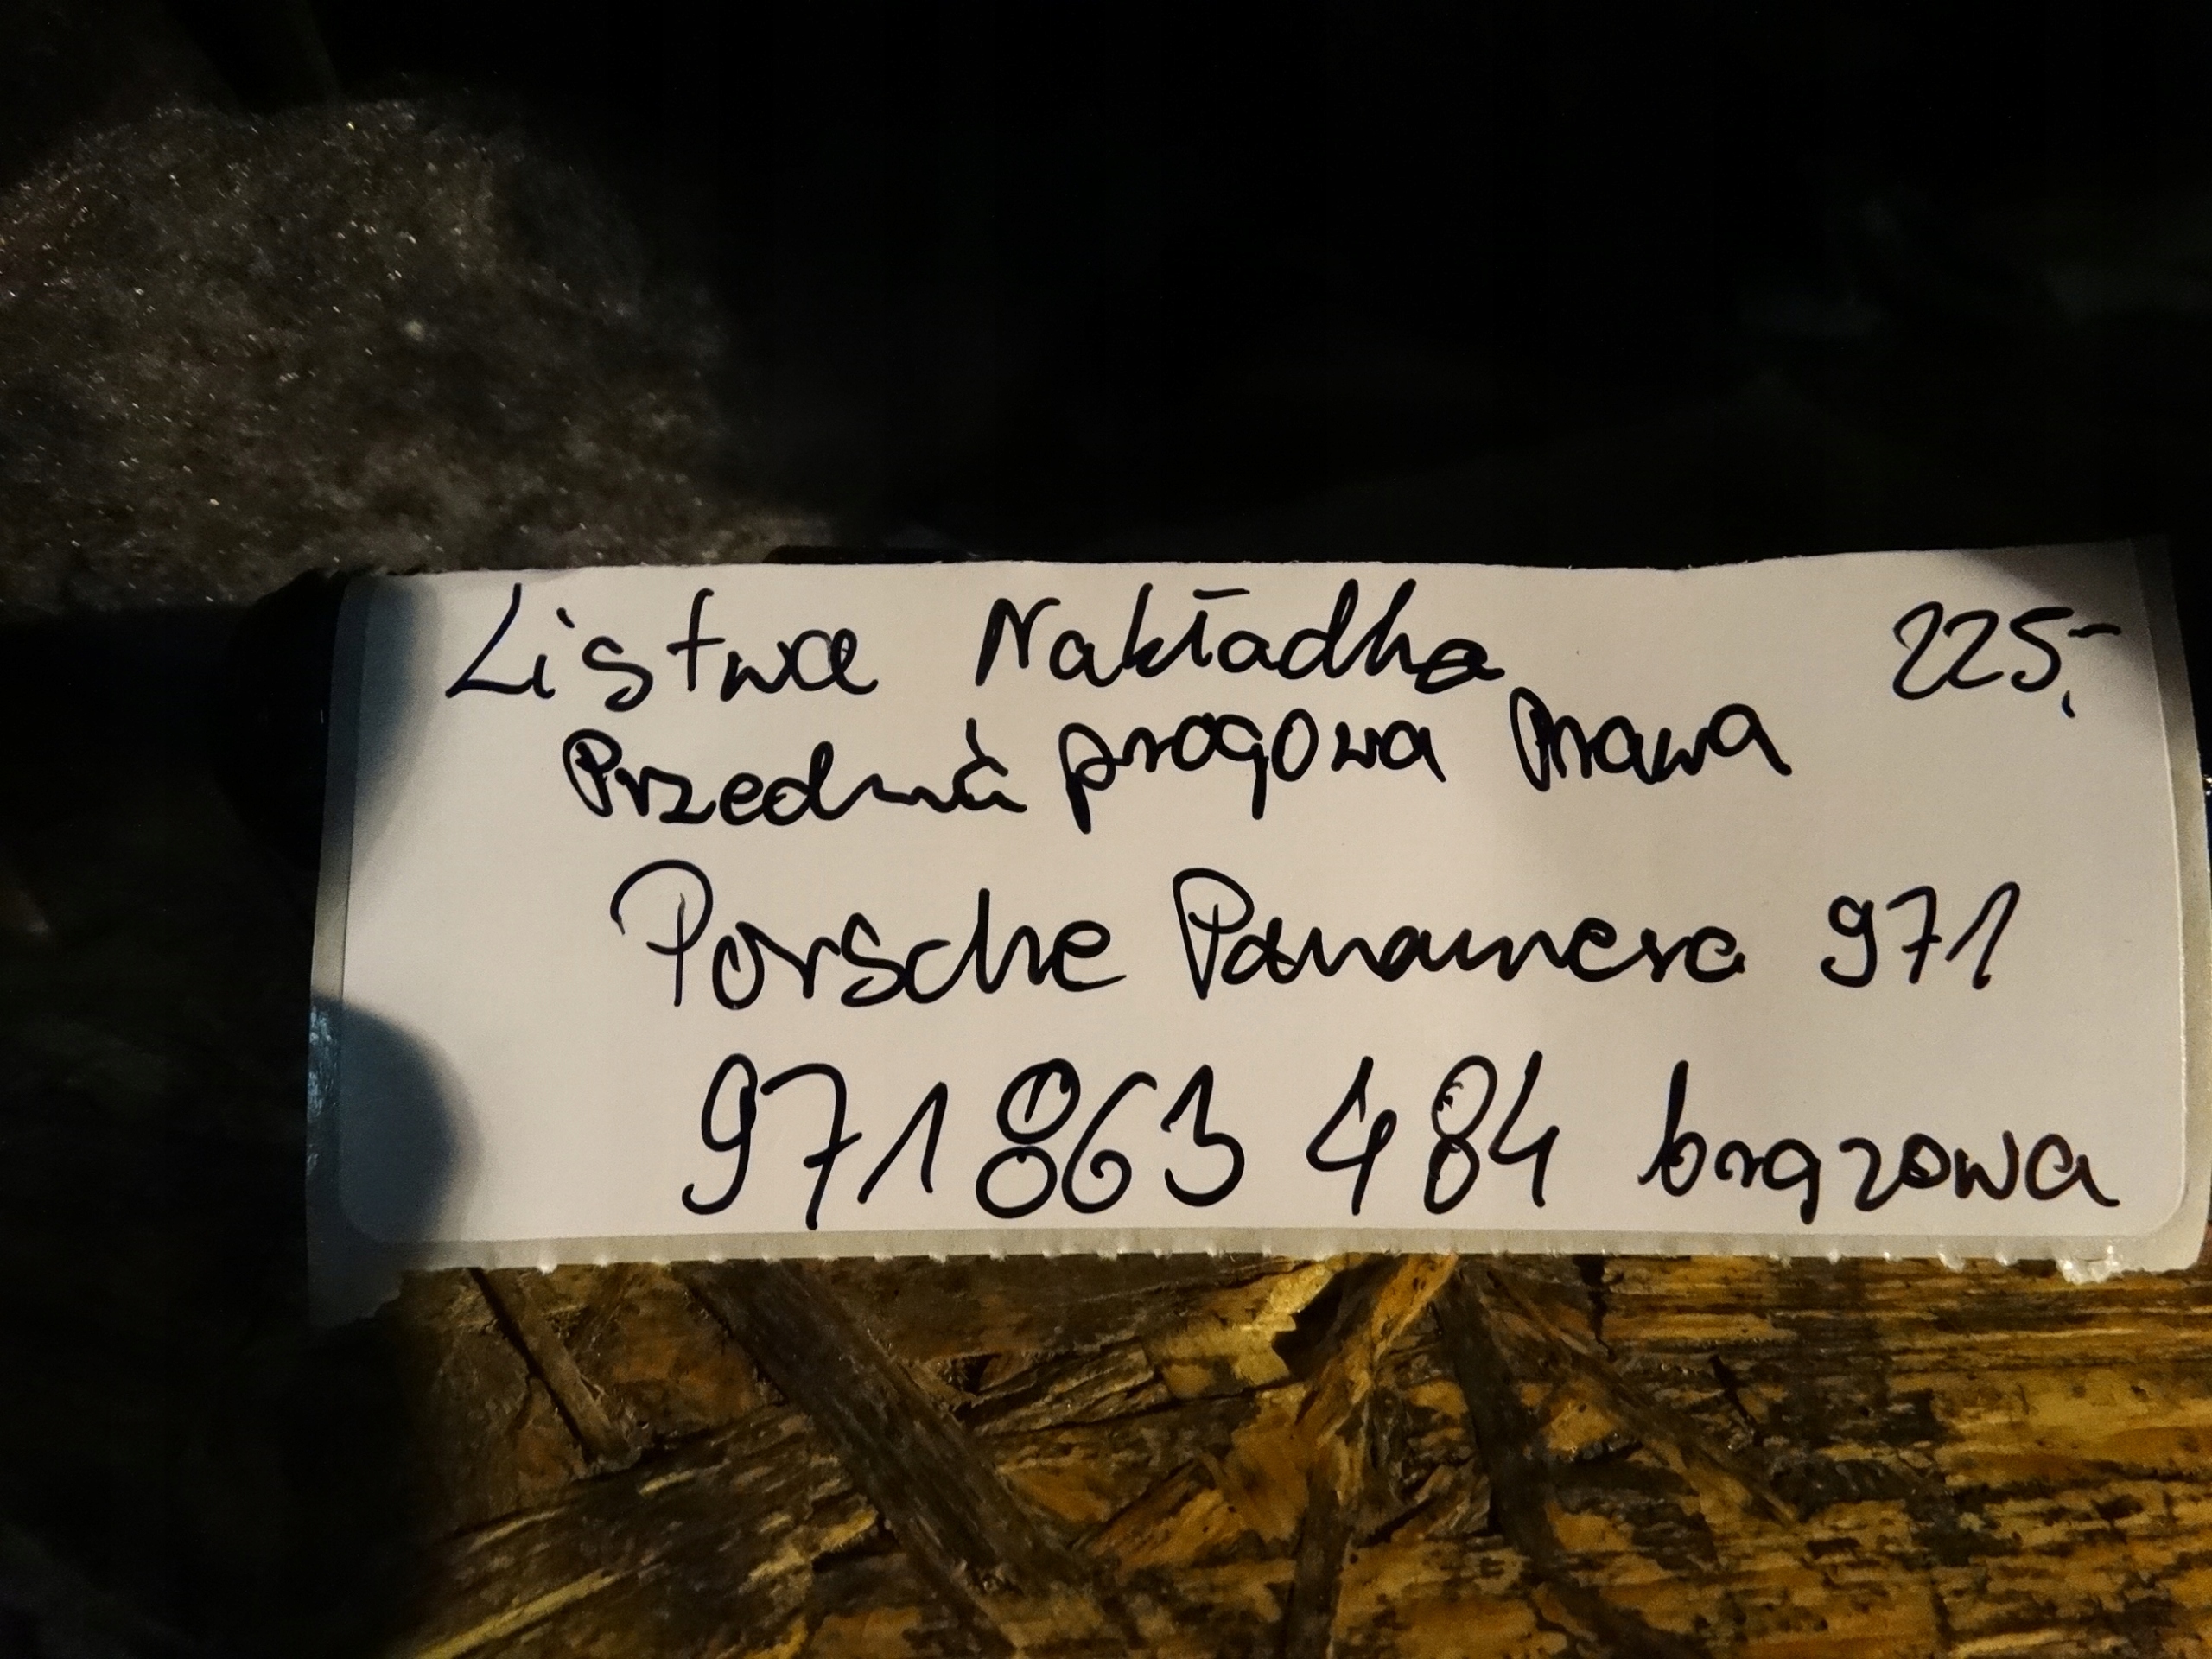 Listwa Nakładka 225,-
Przednia progowa Prawa
Porsche Panamera 971
971 863 484 brązowa